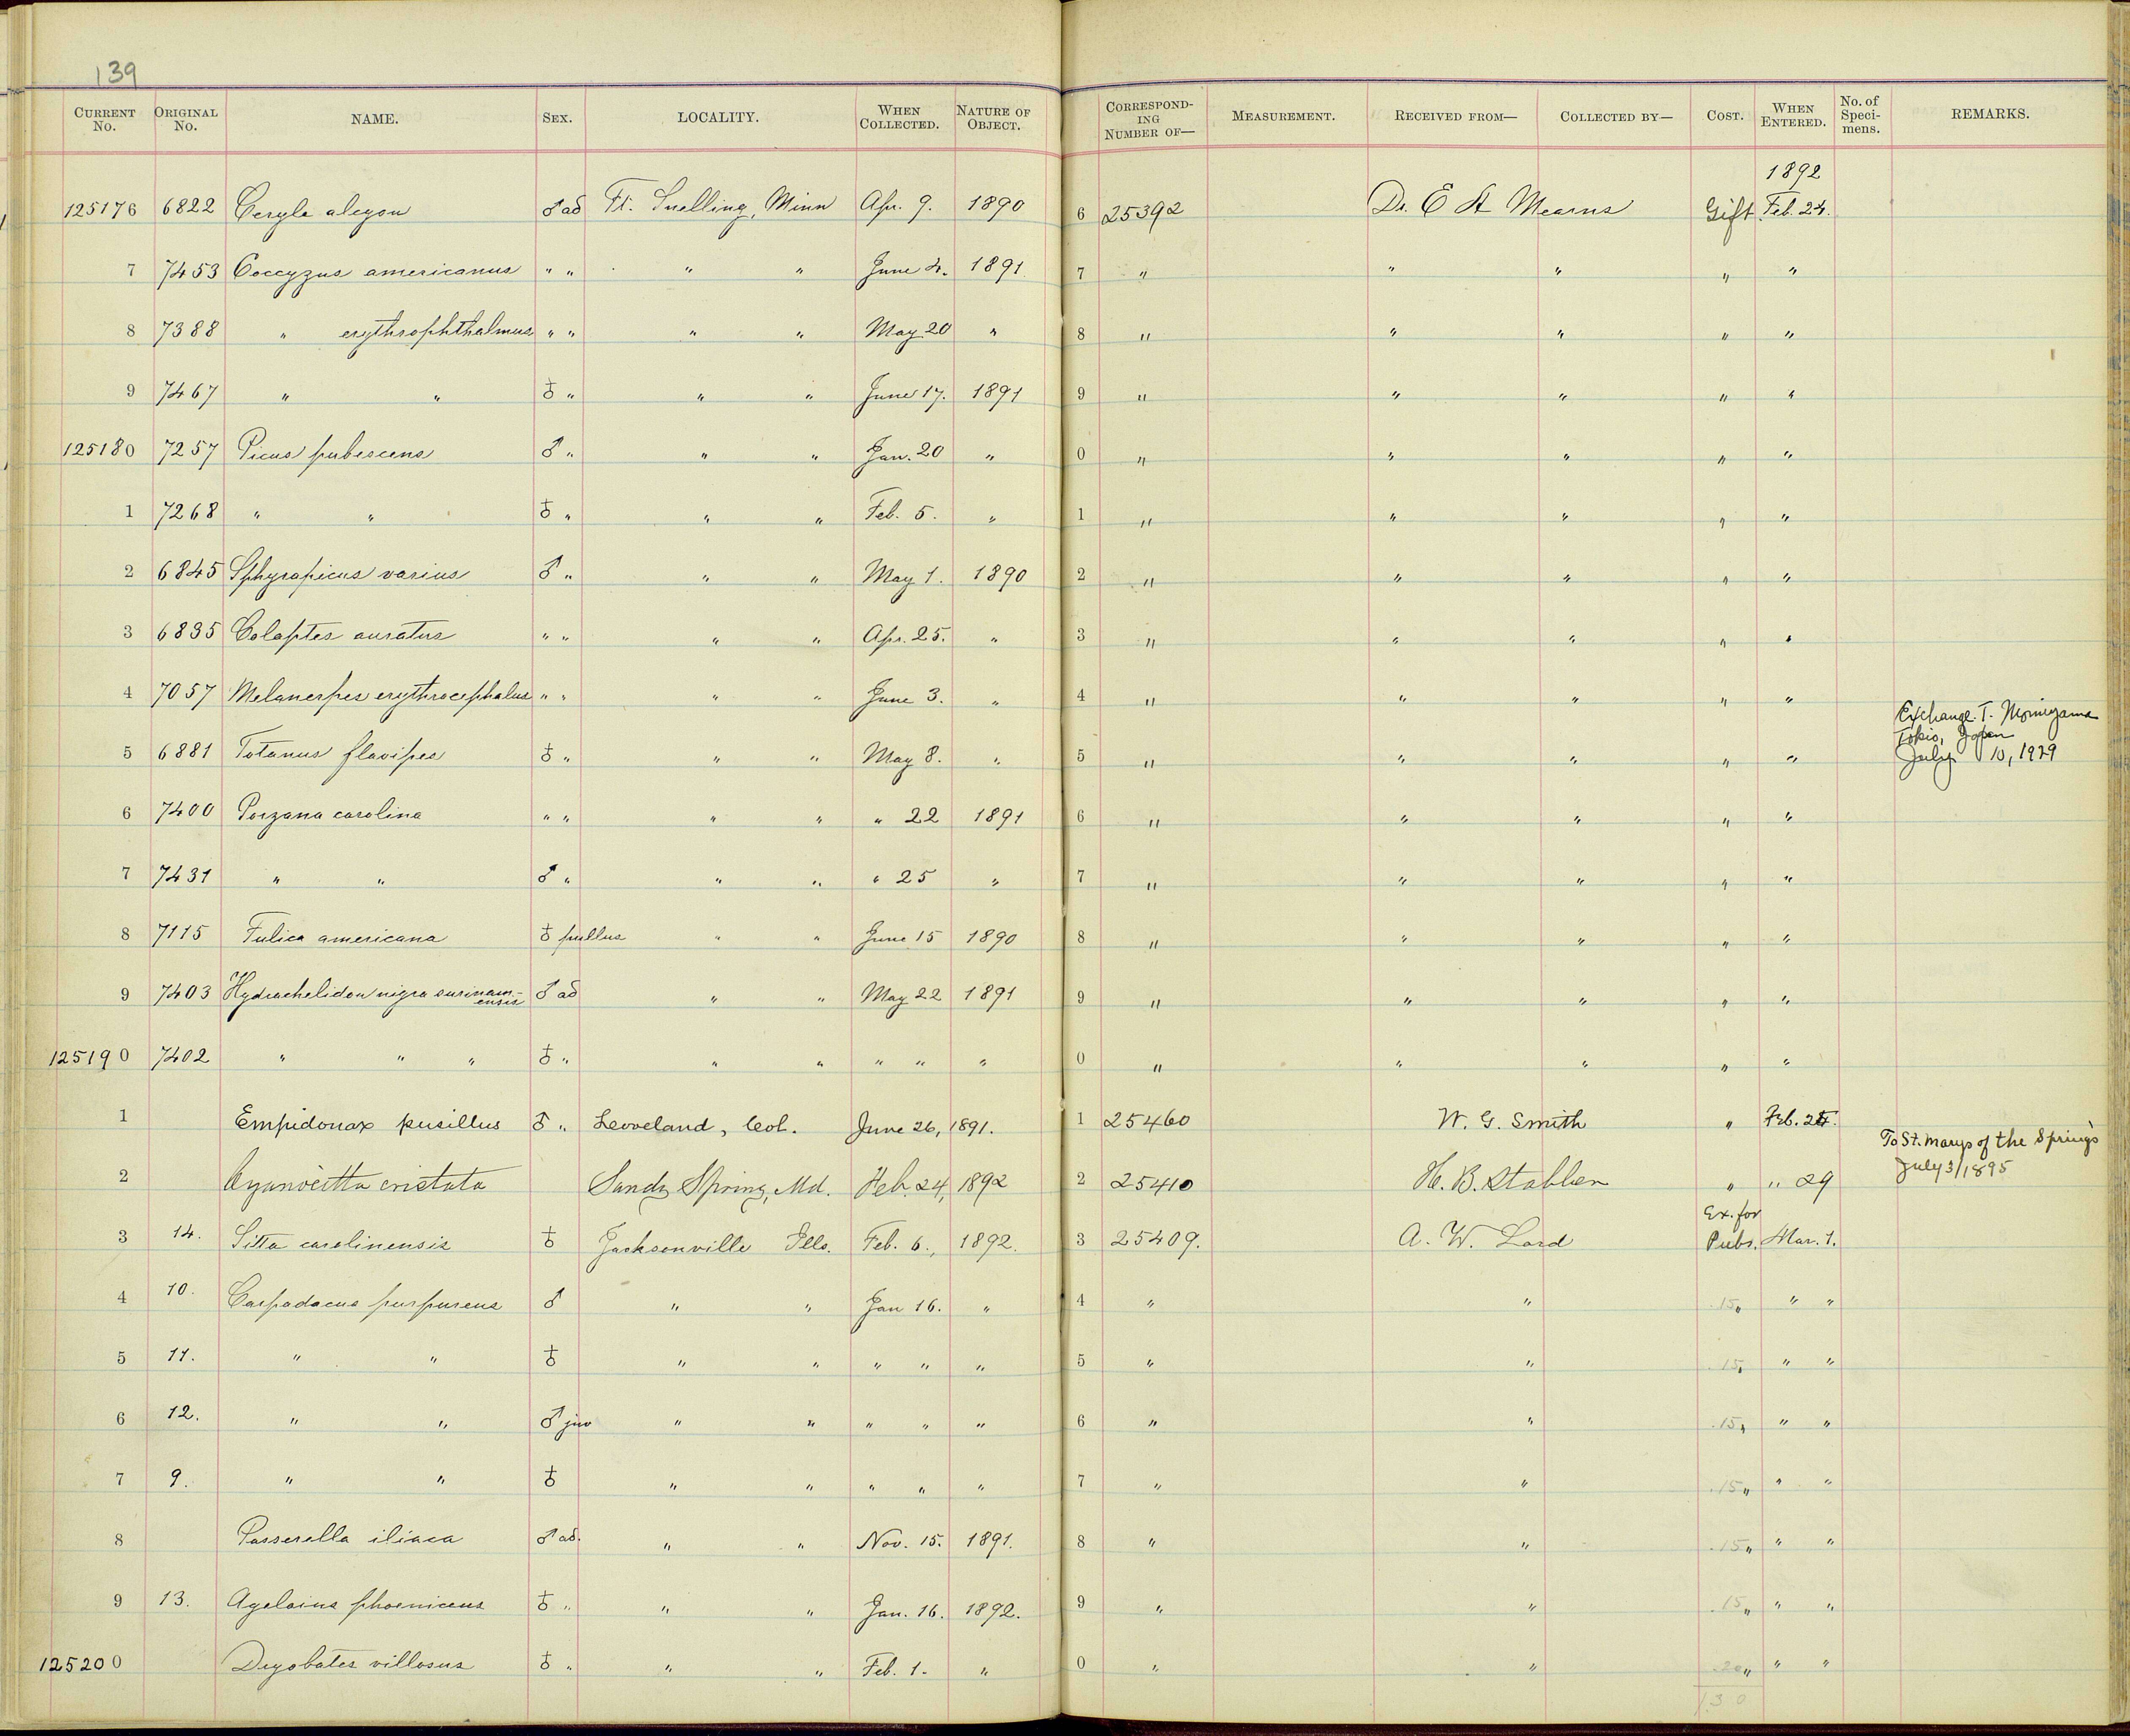 139
CURRENT No. ORIGINAL No. NAME. SEX. LOCALITY. WHEN COLLECTED. NATURE OF OBJECT. CORRESPONDING NUMBER OF— MEASUREMENT. RECEIVED FROM— COLLECTED BY— COST. WHEN ENTERED. No. of Specimens. REMARKS.
1892
125176 6822 Ceryle alcyon ♂ ad Ft. Snelling, Minn Apr. 9. 1890 6 25392 Dr. E A Mearns Gift Feb. 24.
7 7453 Coccyzus americanus " " " " June 4. 1891 7 " " " " "
8 7388 " erythrophthalmus " " " " May 20 " 8 " " " " "
9 7467 " " ♀ " " " June 17. 1891 9 " " " " "
125180 7257 Picus pubescens ♂ " " " Jan. 20 " 0 " " " " "
1 7268 " " ♀ " " " Feb. 5. " 1 " " " " "
2 6845 Sphyrapicus varius ♂ " " " May 1. 1890 2 " " " " "
3 6835 Colaptes auratus " " " " Apr. 25. " 3 " " " " "
4 7057 Melanerpes erythrocephalus " " " " June 3. " 4 " " " " "
Exchange T. Momiyama
Tokio, Japan
5 6881 Totanus flavipes ♀ " " " May 8. " 5 " " " " " July 10, 1929
6 7400 Porzana carolina " " " " " 22 1891 6 " " " " "
7 7431 " " ♂ " " " " 25 " 7 " " " " "
8 7115 Fulica americana ♀ pullus " " June 15 1890 8 " " " " "
9 7403 Hydrochelidon nigra surinam-
ensis ♂ ad " " May 22 1891 9 " " " " "
125190 7402 " " " ♀ " " " " " " 0 " " " " "
1 Empidonax pusillus ♂ " Loveland, Col. June 26, 1891. 1 25460 W. G. Smith " Feb.
To St. Marys of the Springs
2 Cyanocitta cristata Sandy Spring, Md. Feb. 24, 1892 2 25410 H. B. Stabler " " 29 July 3/1895
Ex. for
3 14. Sitta carolinensis ♀ Jacksonville Ills. Feb. 6., 1892. 3 25409. A. W. Lord Pubs. Mar. 1.
4 10. Carpodacus purpureus ♂ " " Jan 16. " 4 " " .15 " " "
5 11. " " ♀ " " " " " 5 " " .15 " " "
6 12. " " ♂ juv " " " " " 6 " " .15 " " "
7 9. " " ♀ " " " " " 7 " " .15 " " "
8 Passerella iliaca ♂ ad. " " Nov. 15. 1891. 8 " " .15 " " "
9 13. Agelaius phoeniceus ♀ " " " Jan. 16. 1892. 9 " " .15 " " "
125200 Dryobates villosus ♀ " " " Feb. 1. " 0 " " .20 " " "
1.30